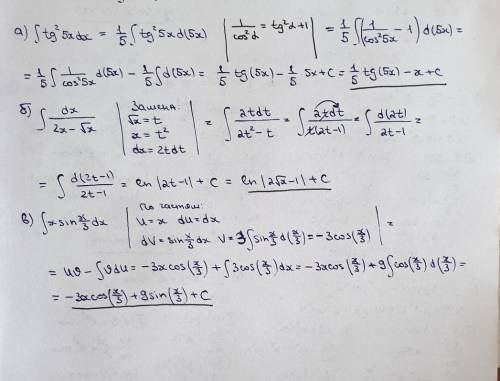 а) ∫tg²5xdx = 1/5 ∫tg²5x d(5x) | 1/cos²α = tg²α+1 | = 1/5 ∫(1/cos²5x - 1) d(5x) =
= 1/5 ∫ 1/cos²5x d(5x) - 1/5 ∫d(5x) = 1/5 tg(5x) - 1/5 5x + C = 1/5 tg(5x) - x + C
б) ∫ dx/(2x-√x) | Замена: √x = t x = t² dx = 2tdt | = ∫ 2tdt/(2t²-t) = ∫ 2tdt/(t(2t-1)) = ∫ d(2t)/(2t-1) =
= ∫ d(2t-1)/(2t-1) = ln|2t-1| + C = ln|2√x-1| + C
в) ∫x sin x/3 dx | По частям: u = x du = dx dV = sin x/3 dx V = 3∫sin x/3 d(x/3) = -3cos(x/3) | =
= uv - ∫vdu = -3xcos(x/3) + ∫3cos(x/3)dx = -3xcos(x/3) + 9∫cos(x/3) d(x/3) =
= -3xcos(x/3) + 9sin(x/3) + C